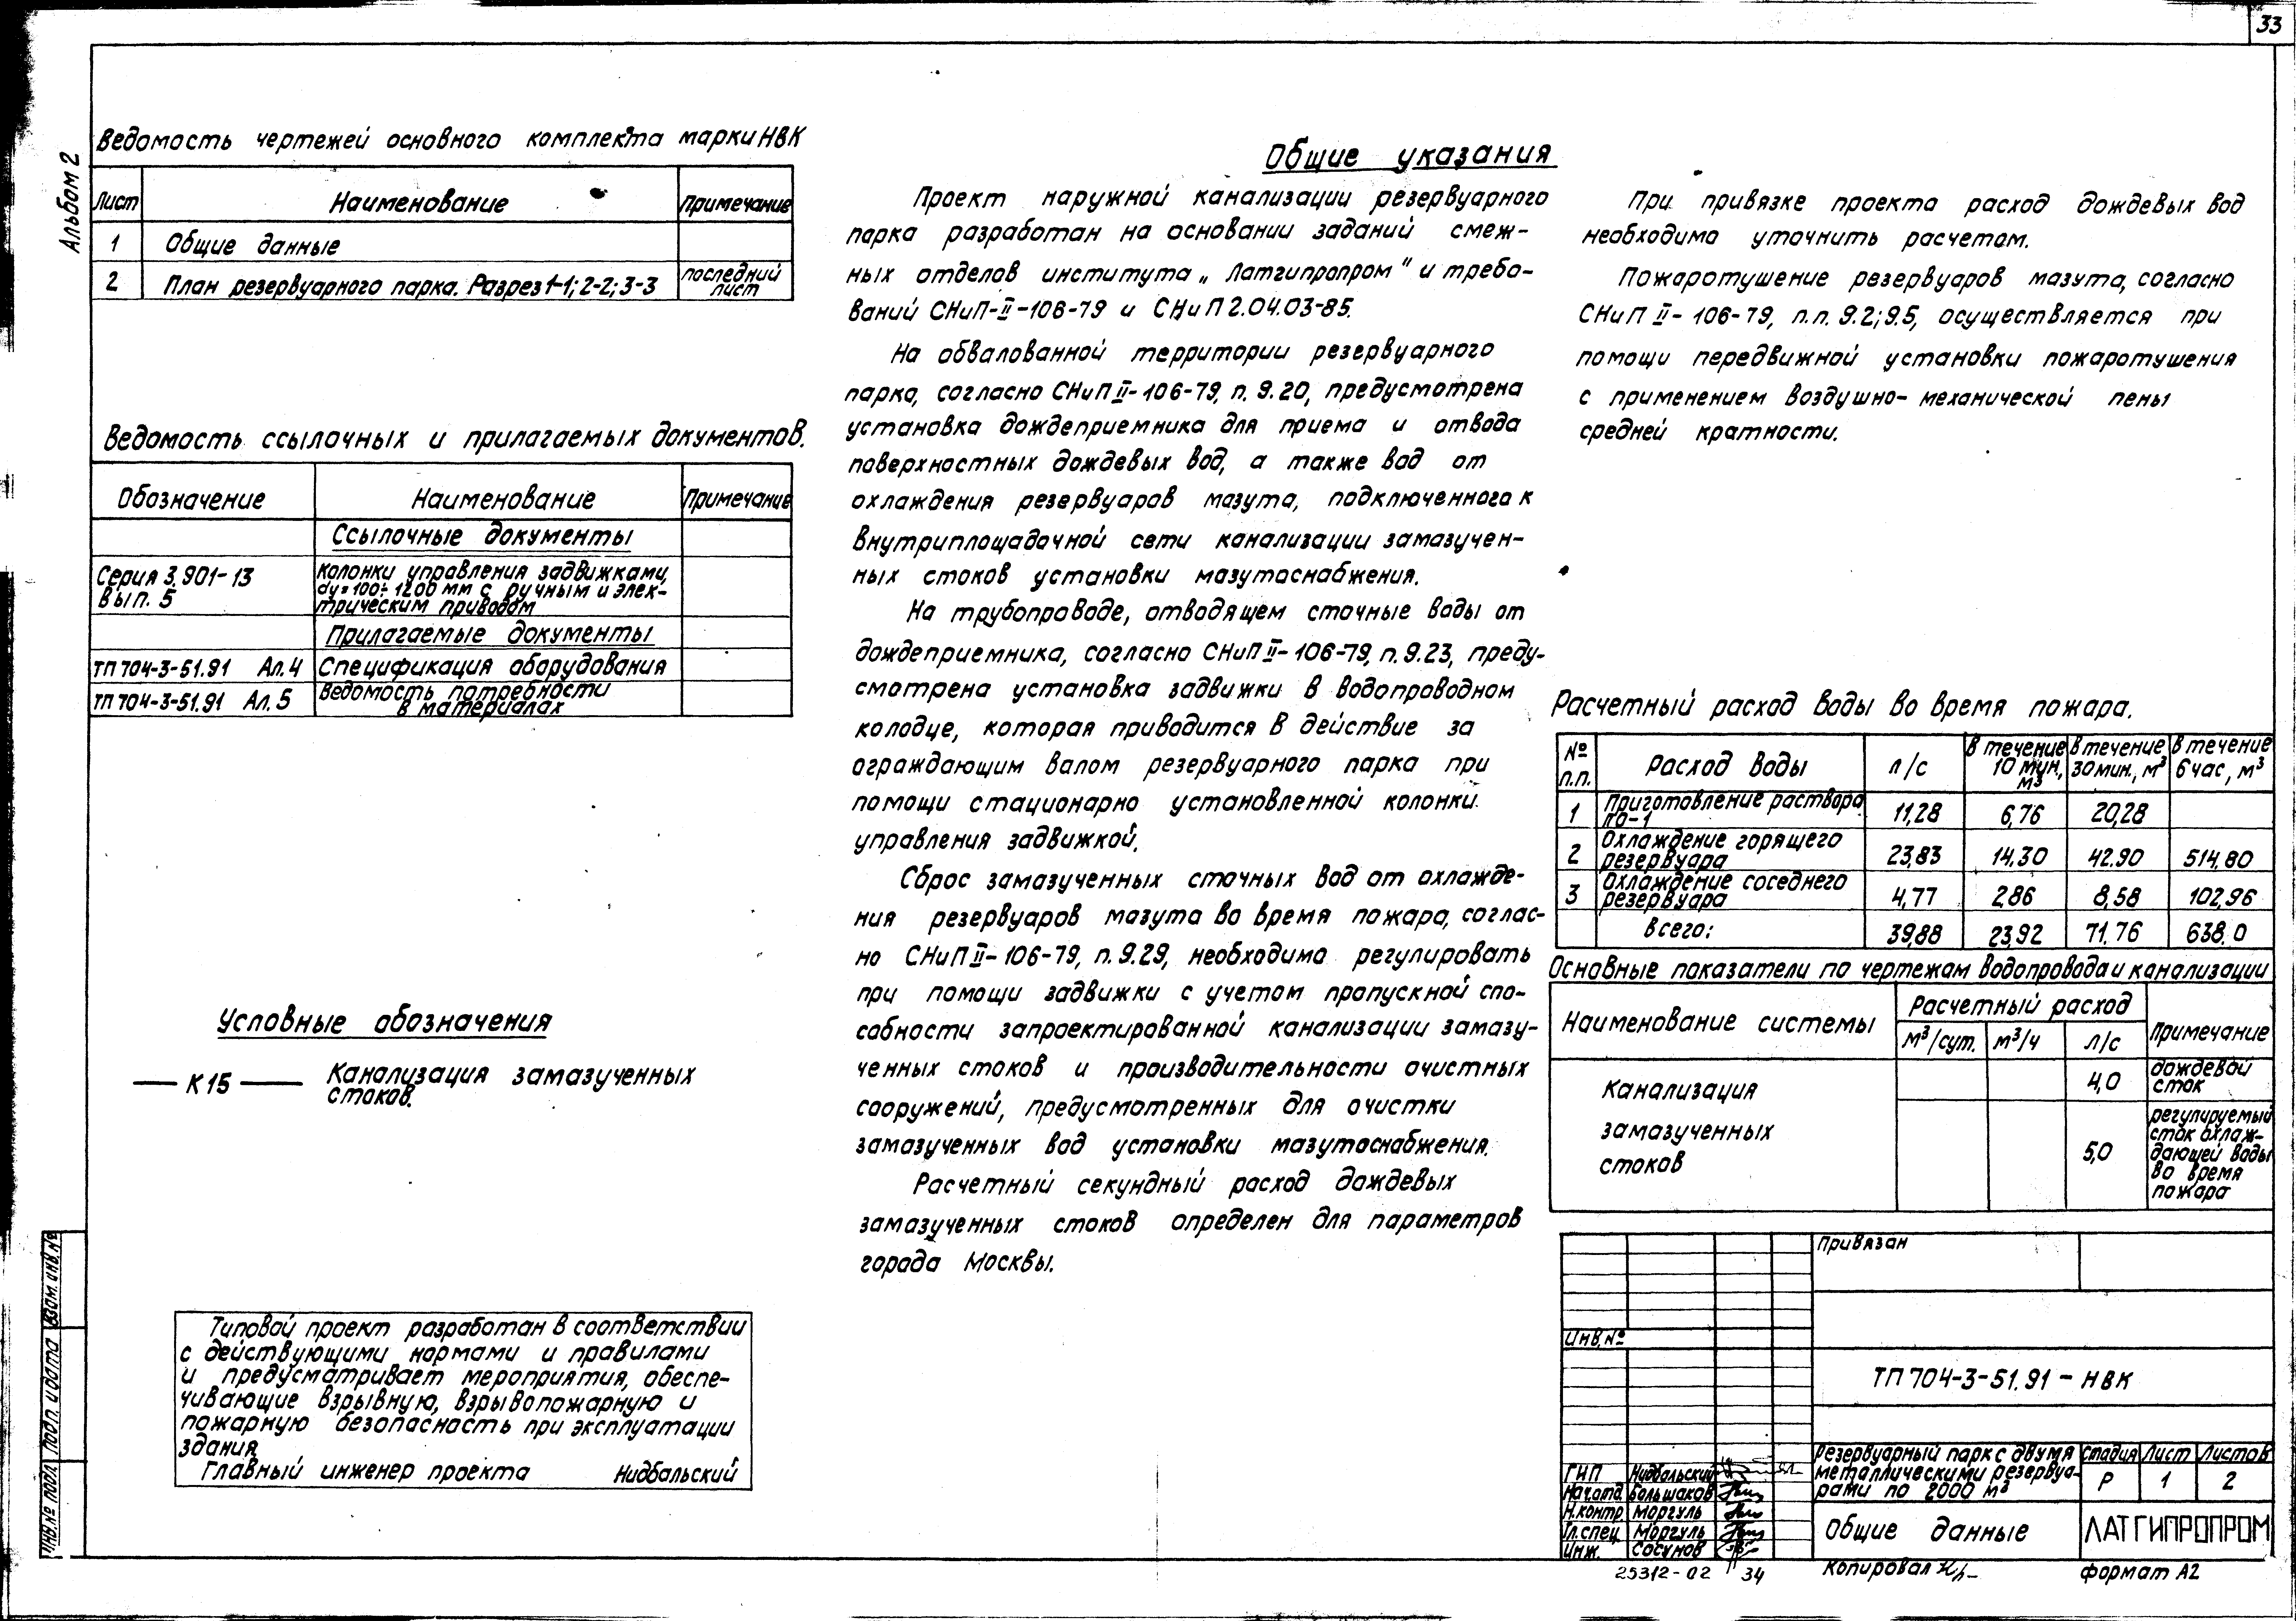 33
Альбом 2
Ведомость чертежей основного комплекта марки НВК
Лист Наименование Примечание
1 Общие данные
2 План резервуарного парка. Разрез 1-1; 2-2; 3-3 последний лист
Ведомость ссылочных и прилагаемых документов.
Обозначение Наименование Примечание
Ссылочные документы
Серия 3.901-13 Колонки управления задвижками,
Вып. 5 dу=100÷1200 мм с ручным и элек-
трическим приводом
Прилагаемые документы
ТП 704-3-51.91 Ал.4 Спецификация оборудования
ТП 704-3-51.91 Ал.5 Ведомость потребности
в материалах
Условные обозначения
— К15 — Канализация замазученных
стоков.
Типовой проект разработан в соответствии
с действующими нормами и правилами
и предусматривает мероприятия, обеспе-
чивающие взрывную, взрывопожарную и
пожарную безопасность при эксплуатации
здания
Главный инженер проекта Нидбальский
Общие указания
Проект наружной канализации резервуарного
парка разработан на основании заданий смеж-
ных отделов института „Латгипропром" и требо-
ваний СНиП-II-106-79 и СНиП 2.04.03-85.
На обвалованной территории резервуарного
парка, согласно СНиП II-106-79, п. 9.20, предусмотрена
установка дождеприемника для приема и отвода
поверхностных дождевых вод, а также вод от
охлаждения резервуаров мазута, подключенного к
внутриплощадочной сети канализации замазучен-
ных стоков установки мазутоснабжения.
На трубопроводе, отводящем сточные воды от
дождеприемника, согласно СНиП II-106-79, п. 9.23, преду-
смотрена установка задвижки в водопроводном
колодце, которая приводится в действие за
ограждающим валом резервуарного парка при
помощи стационарно установленной колонки
управления задвижкой.
Сброс замазученных сточных вод от охлажде-
ния резервуаров мазута во время пожара, соглас-
но СНиП II-106-79, п. 9.29, необходимо регулировать
при помощи задвижки с учетом пропускной спо-
собности запроектированной канализации замазу-
ченных стоков и производительности очистных
сооружений, предусмотренных для очистки
замазученных вод установки мазутоснабжения.
Расчетный секундный расход дождевых
замазученных стоков определен для параметров
города Москвы.
При привязке проекта расход дождевых вод
необходимо уточнить расчетом.
Пожаротушение резервуаров мазута, согласно
СНиП II-106-79, п.п. 9.2; 9.5, осуществляется при
помощи передвижной установки пожаротушения
с применением воздушно-механической пены
средней кратности.
Расчетный расход воды во время пожара.
№ п.п. Расход воды л/с В течение 10 мин, м³ В течение 30 мин., м³ В течение 6 час, м³
1 Приготовление раствора ПО-1 11,28 6,76 20,28
2 Охлаждение горящего резервуара 23,83 14.30 42.90 514,80
3 Охлаждение соседнего резервуара 4,77 2,86 8,58 102,96
Всего: 39,88 23,92 71.76 638.0
Основные показатели по чертежам водопровода и канализации
Наименование системы Расчетный расход Примечание
м³/сут. м³/ч л/с
Канализация замазученных стоков 4,0 дождевой сток
5,0 регулируемый
сток охлаж-
дающей воды
во время
пожара
Привязан
Инв.№
ТП 704-3-51.91-НВК
ГИП Нидбальский
Нач.отд. Большаков
Н.контр Моргуль
Гл.спец. Моргуль
Инж. Сосунов
Резервуарный парк с двумя
металлическими резервуа-
рами по 2000 м³
Стадия Лист Листов
Р 1 2
Общие данные
ЛАТГИПРОПРОМ
25312-02 34
Копировал
формат А2
Взам. инв.№
Подп. и дата
Инв.№ подл.